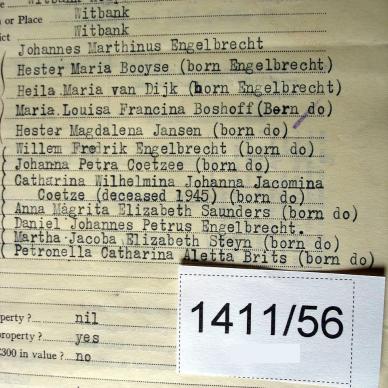 Witbank
n or Place Witbank
ict Witbank
Johannes Marthinus Engelbrecht
Hester Maria Booyse (born Engelbrecht)
Heila Maria van Dijk (born Engelbrecht)
Maria Louisa Francina Boshoff(Born do)
Hester Magdalena Jansen (born do)
Willem Fredrik Engelbrecht (born do)
Johanna Petra Coetzee (born do)
Catharina Wilhelmina Johanna Jacomina
Coetze (deceased 1945) (born do)
Anna Magrita Elizabeth Saunders (born do)
Daniel Johannes Petrus Engelbrecht.
Martha Jacoba Elizabeth Steyn (born do)
Petronella Catharina Aletta Brits (born do)
perty ? nil
property ? yes
£300 in value ? no
1411/56